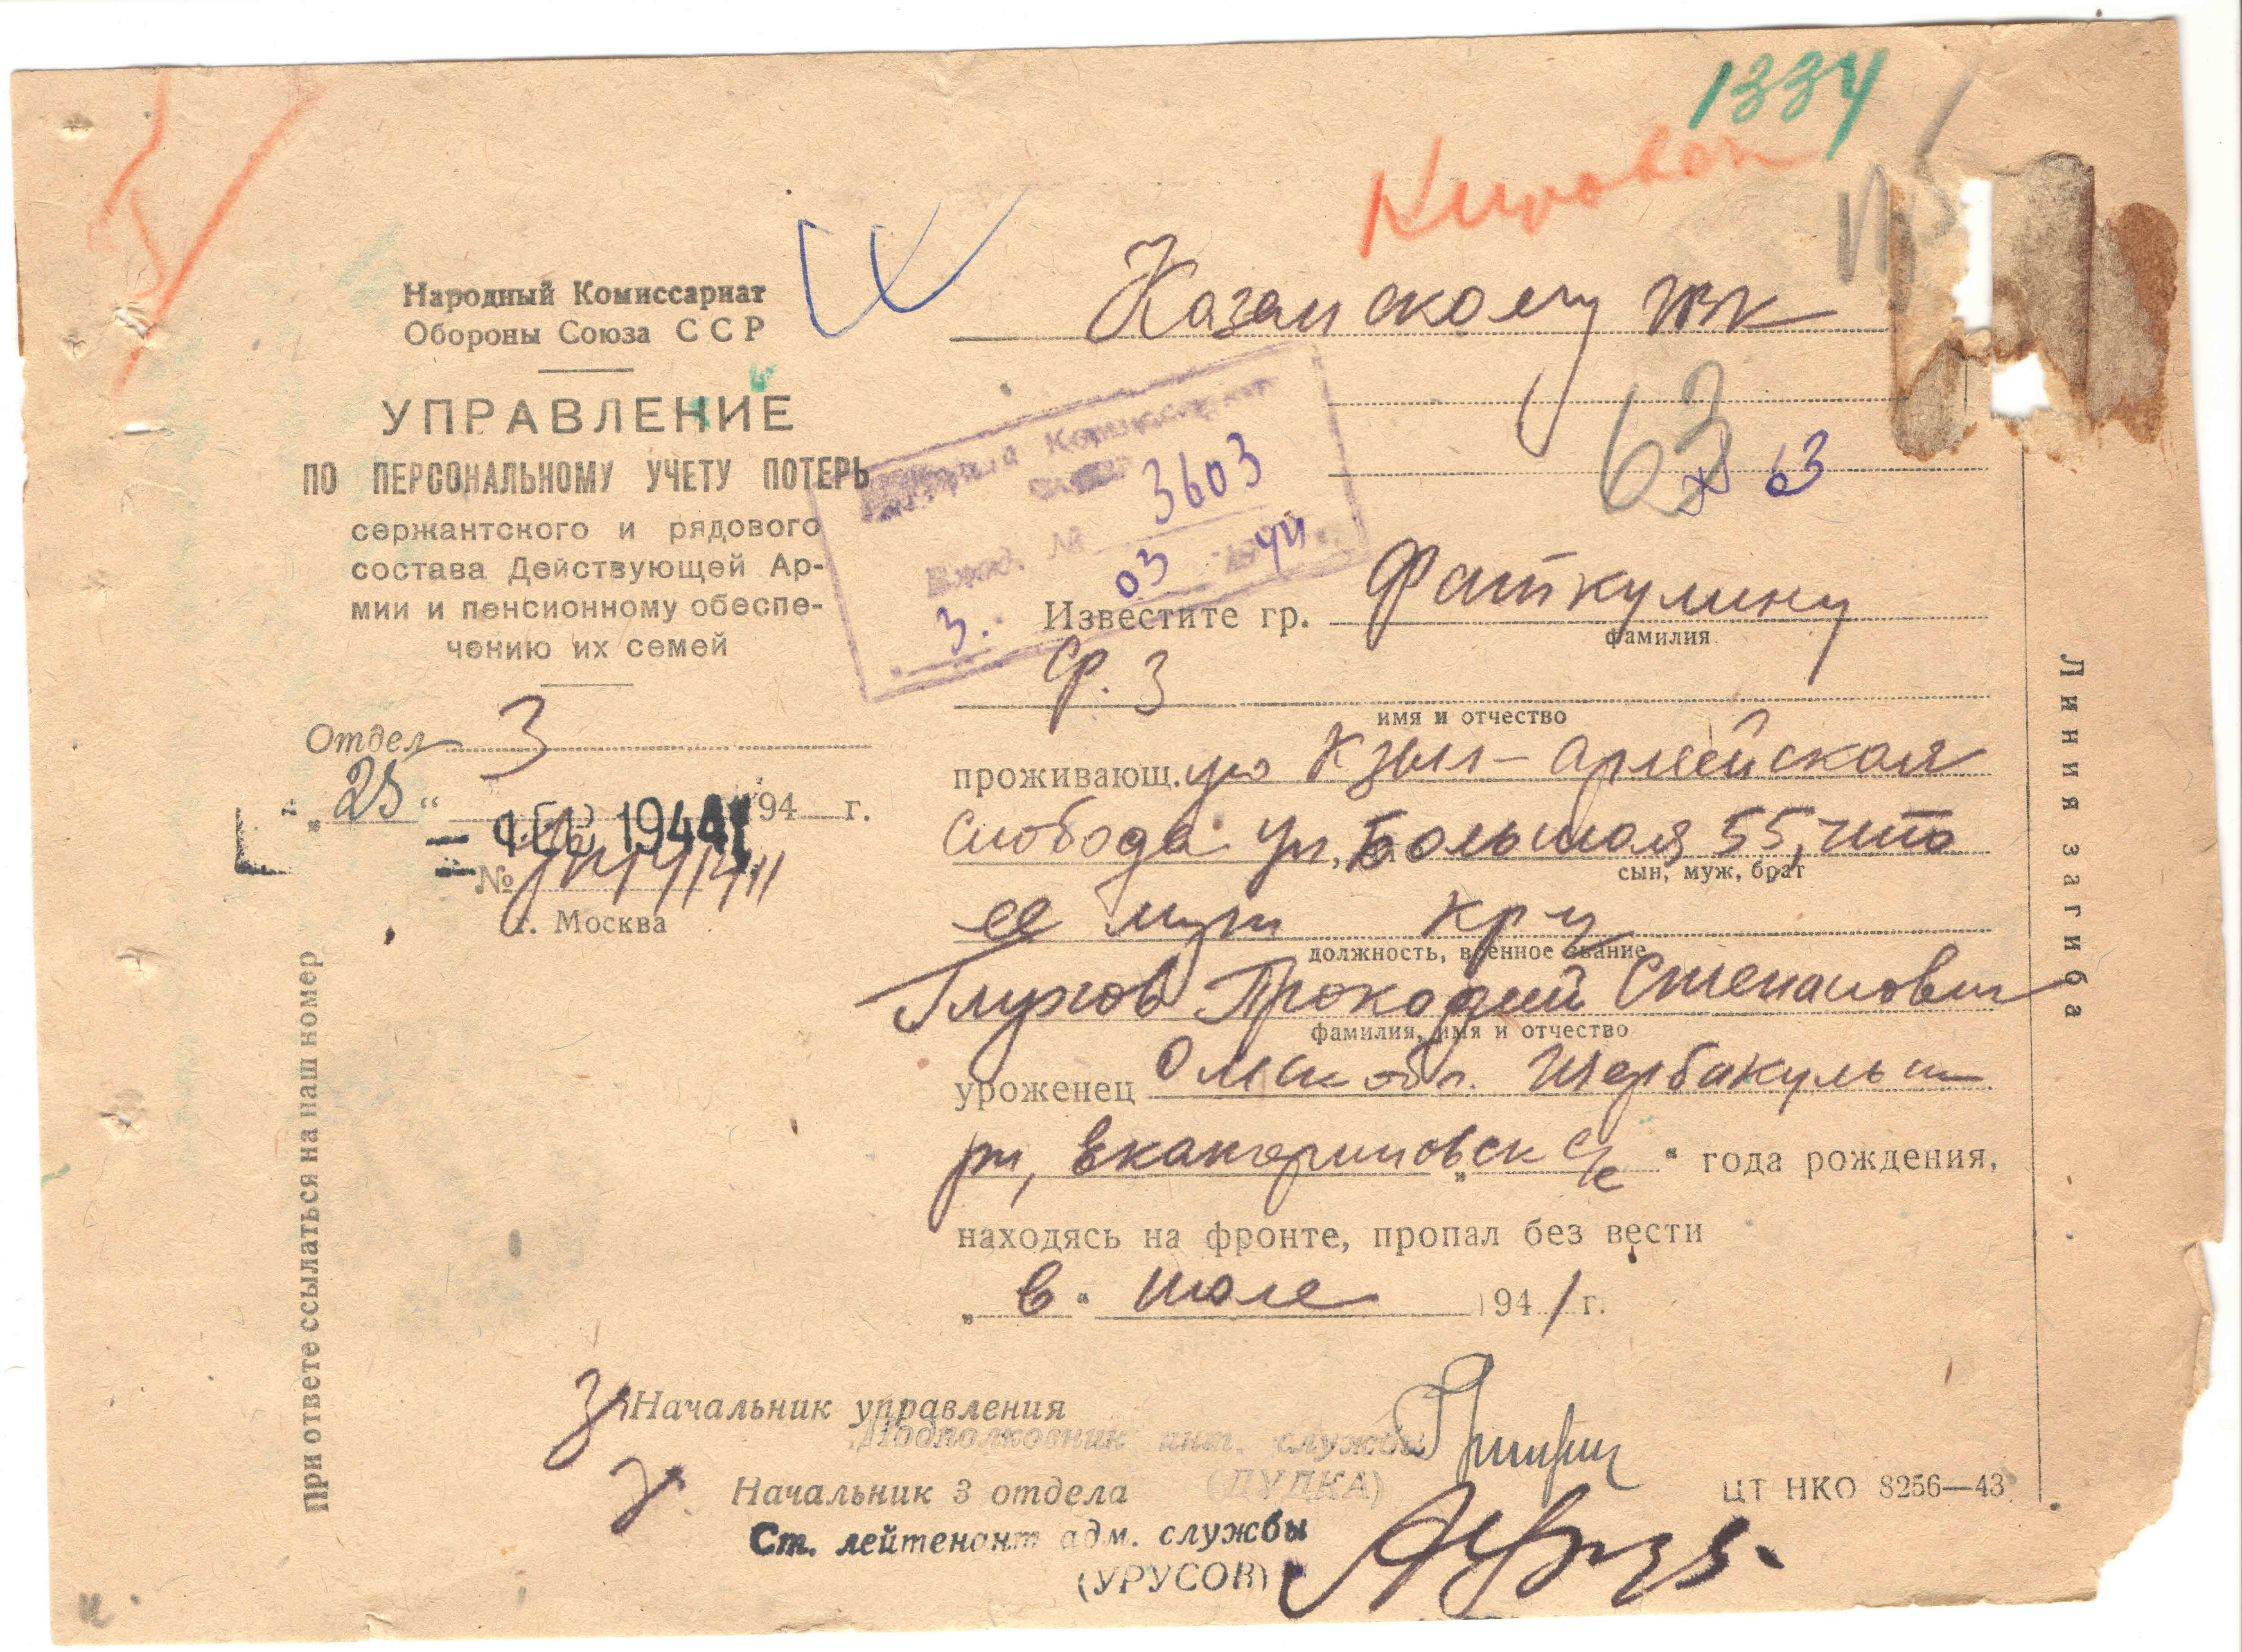 1334
Кировск
Народный Комиссариат
Обороны Союза ССР
УПРАВЛЕНИЕ
ПО ПЕРСОНАЛЬНОМУ УЧЕТУ ПОТЕРЬ
сержантского и рядового
состава Действующей Ар-
мии и пенсионному обеспе-
чению их семей
Отдел 3
„25“ 194 г.
1944
№
г. Москва
При ответе ссылаться на наш номер
Казанскому
63
63
Комиссариат
Вход. № 3603
3. 03 1944 г.
Известите гр. Фаткулину
фамилия
Ф. З
имя и отчество
проживающ. Кзыл-Армейская
слобода ул. Большая 55, что
сын, муж, брат
ее муж кр-ц
должность, военное звание
Глухов Прокофий Степанович
фамилия, имя и отчество
уроженец Омск обл. Шербакульск
рн, Екатериновск с/с “ года рождения,
находясь на фронте, пропал без вести
„ в “ июле 1941 г.
Начальник управления
Подполковник инт. службы
(ДУДКА)
Начальник 3 отдела
Ст. лейтенант адм. службы
(УРУСОВ)
ЦТ НКО 8256—43
Линия загиба